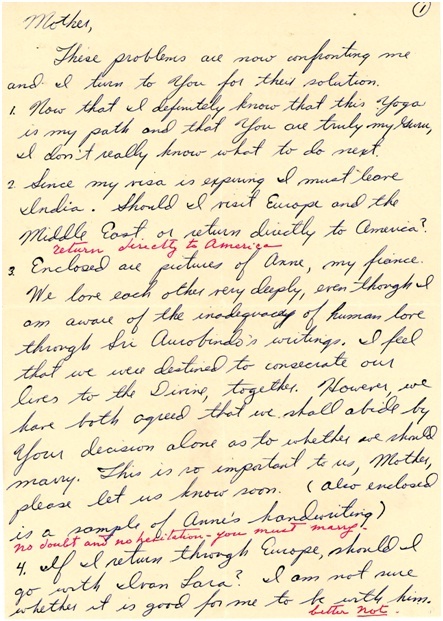 1
Mother,
These problems are now confronting me
and I turn to You for their solution.
1. Now that I definitely know that this Yoga
is my path and that You are truly my Guru,
I don't really know what to do next.
2. Since my visa is expiring I must leave
India. Should I visit Europe and the
Middle East or return directly to America?
return directly to America
3. Enclosed are pictures of Anne, my fiance.
We love each other very deeply, even though I
am aware of the inadequacy of human love
through Sri Aurobindo's writings. I feel
that we were destined to consecrate our
lives to the Divine, together. However, we
have both agreed that we shall abide by
Your decision alone as to whether we should
marry. This is so important to us, Mother,
please let us know soon. (also enclosed
is a sample of Anne's handwriting)
no doubt and no hesitation - you must marry!
4. If I return through Europe, should I
go with Ivan Lara? I am not sure
whether it is good for me to be with him.
better not.